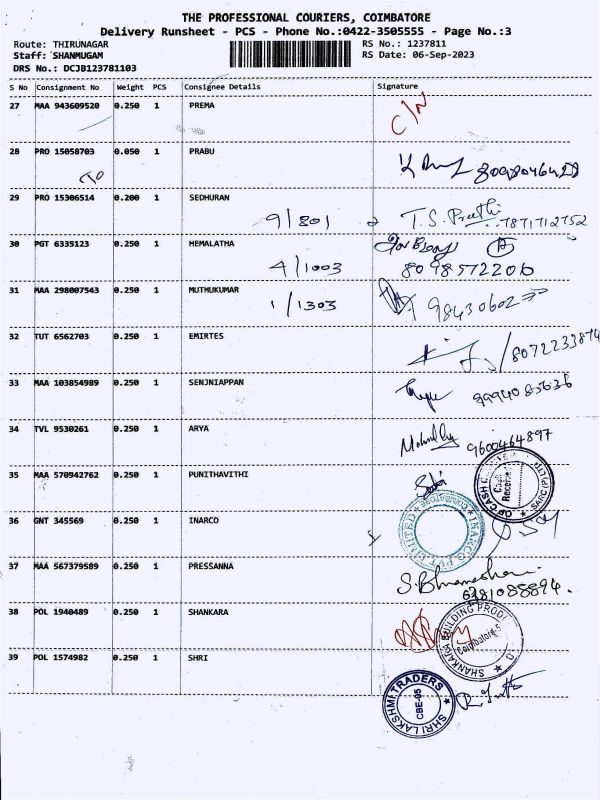 THE PROFESSIONAL COURIERS, COIMBATORE
Delivery Runsheet - PCS - Phone No.:0422-3505555 - Page No.:3
Route: THIRUNAGAR RS No.: 1237811
Staff: SHANMUGAM RS Date: 06-Sep-2023
DRS No.: DCJB123781103
S No Consignment No Weight PCS Consignee Details Signature
27 MAA 943609520 0.250 1 PREMA
C/N
28 PRO 15058703 0.050 1 PRABU
29 PRO 15306514 0.200 1 SEDHURAN
9/801 T.S. Preethi 7871712752
30 PGT 6335123 0.250 1 HEMALATHA
4/1003 8098572206
31 MAA 298007543 0.250 1 MUTHUKUMAR
1/1303
32 TUT 6562703 0.250 1 EMIRTES
8072233874
33 MAA 103854989 0.250 1 SENJNIAPPAN
34 TVL 9530261 0.250 1 ARYA
9600464897
35 MAA 570942762 0.250 1 PUNITHAVITHI
36 GNT 345569 0.250 1 INARCO
37 MAA 567379589 0.250 1 PRESSANNA
6381088894.
38 POL 1940489 0.250 1 SHANKARA
SHANKARA BUILDING PROD
Coimbatore-5
39 POL 1574982 0.250 1 SHRI
SHRI LAKSHMI TRADERS
CBE-05